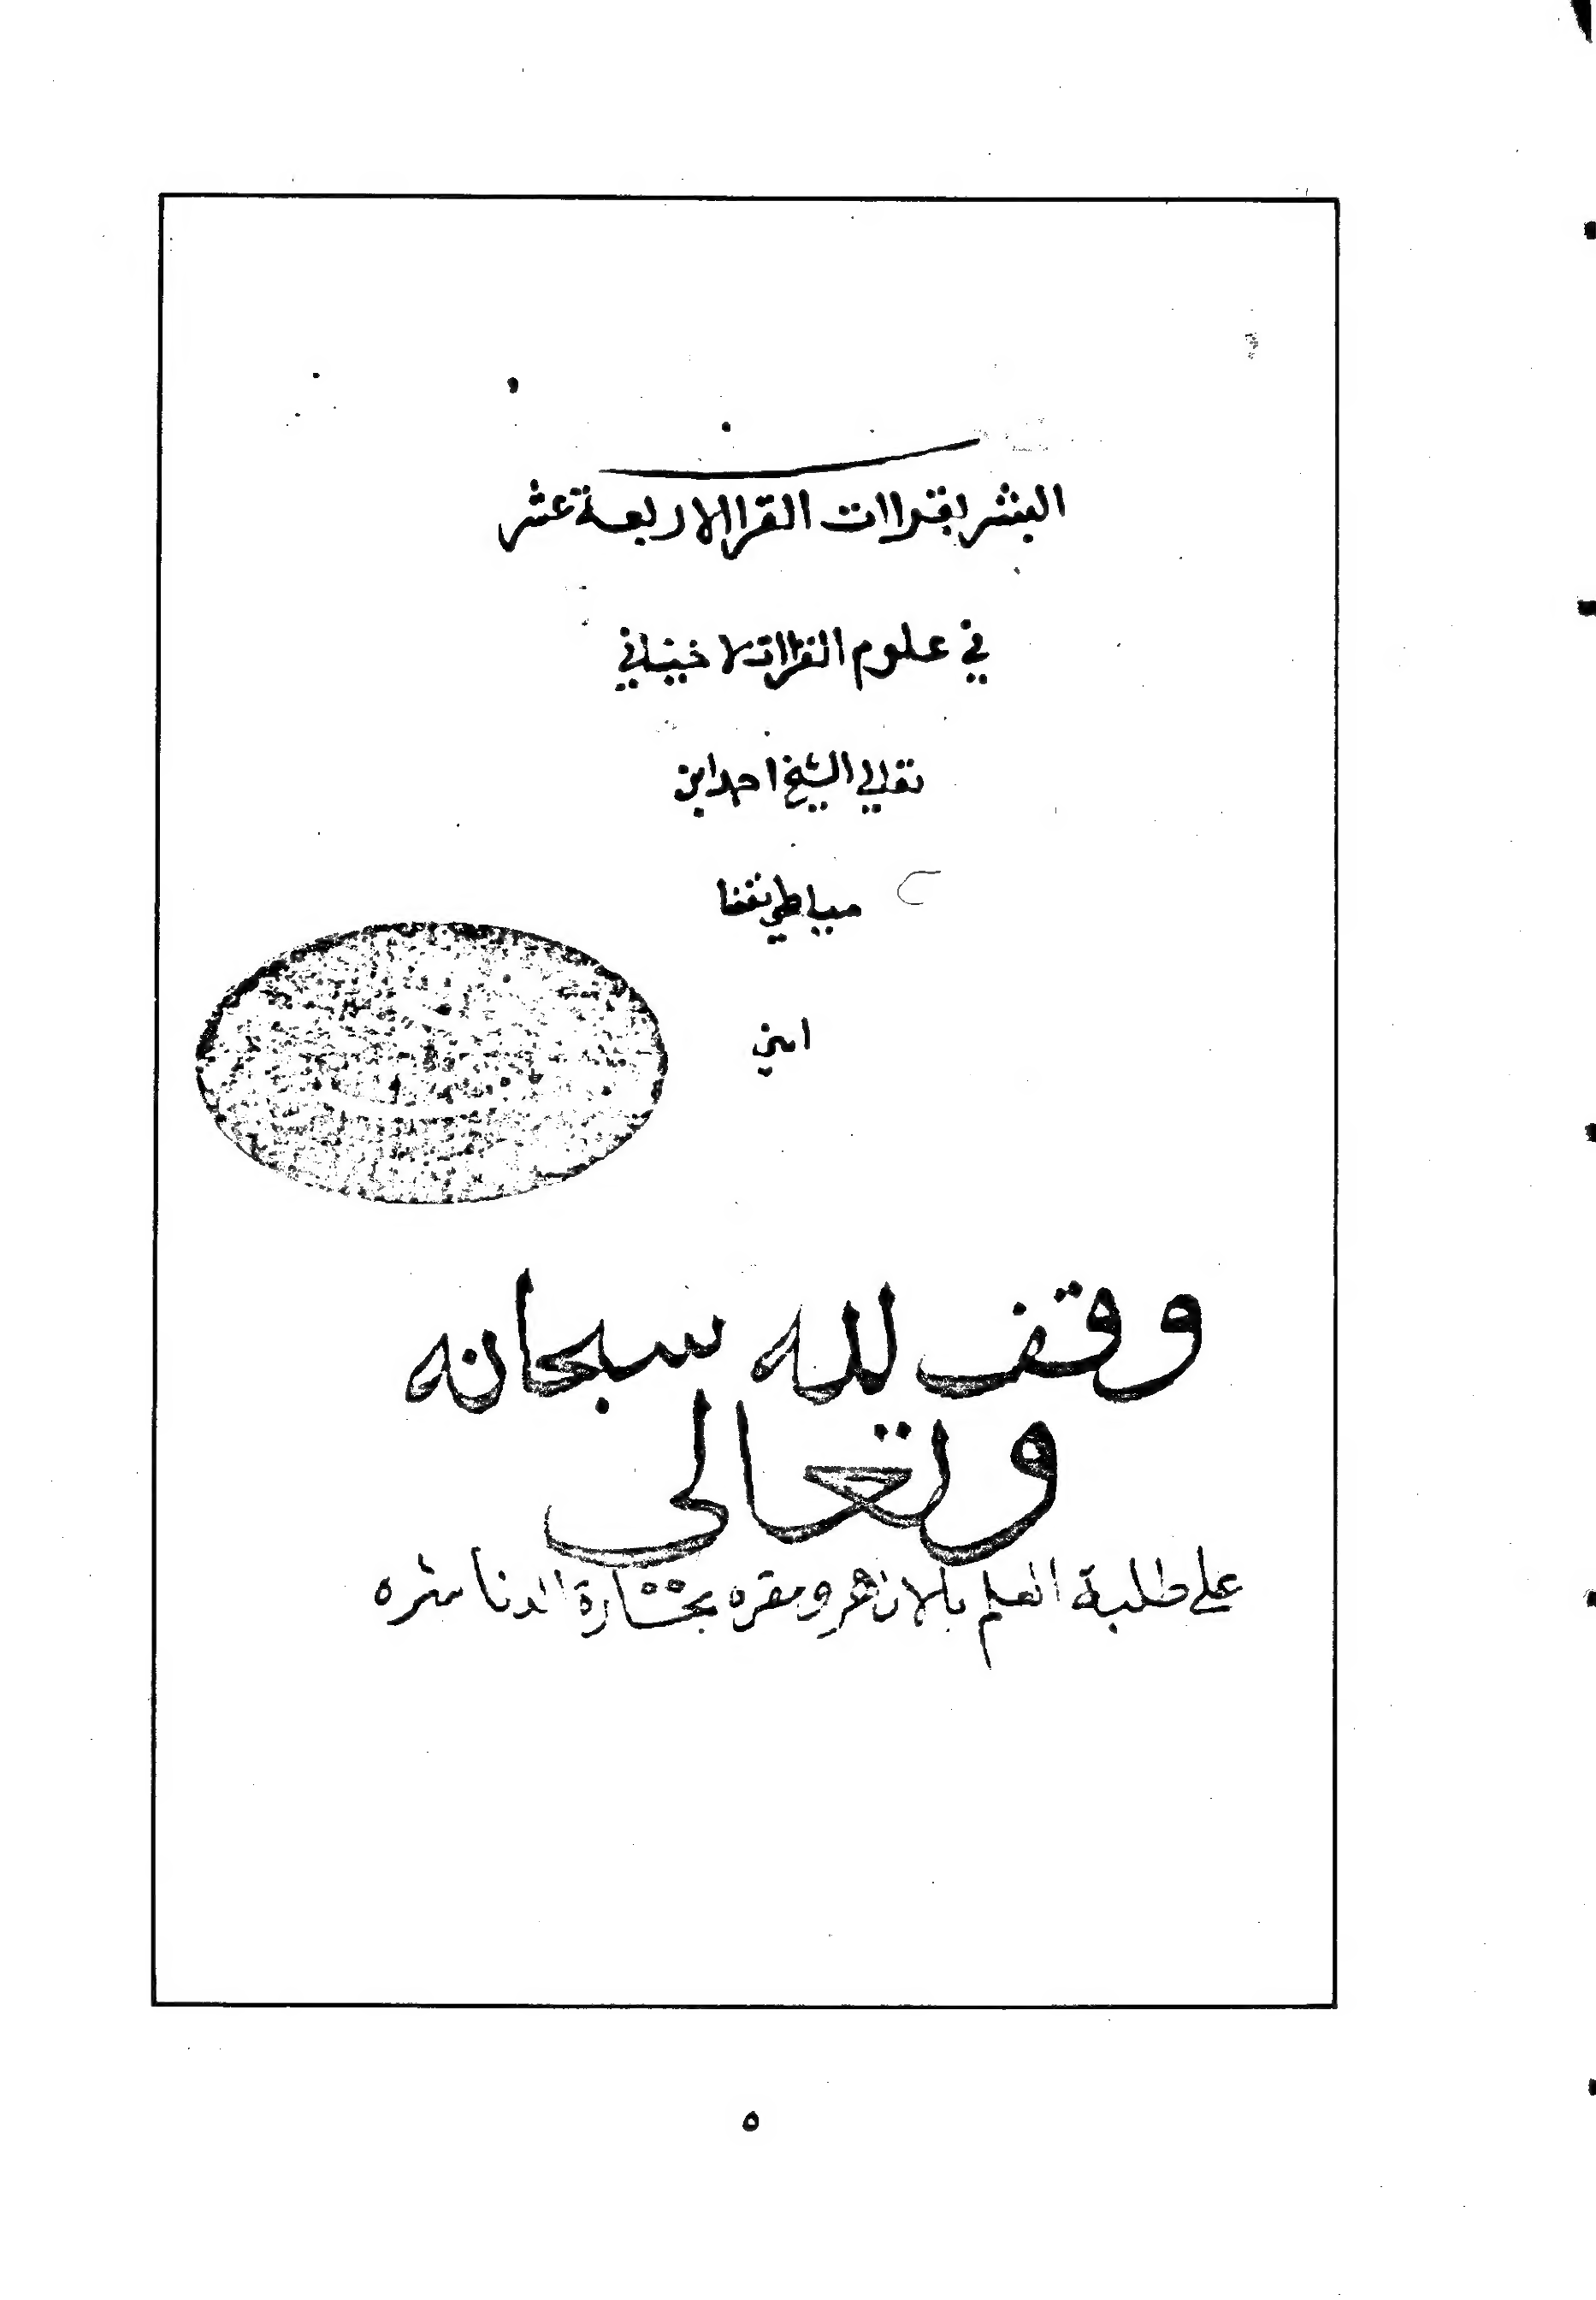 البشر بقراات القرا الاربعة عشر
في علوم القراات لاخينا في
تعالي الشيخ احمد ابن
مياطي نفعنا
امين
وقف لله سبحانه
وتعالى
على طلبة العلم بالازهر ومقره بخزانة
٥